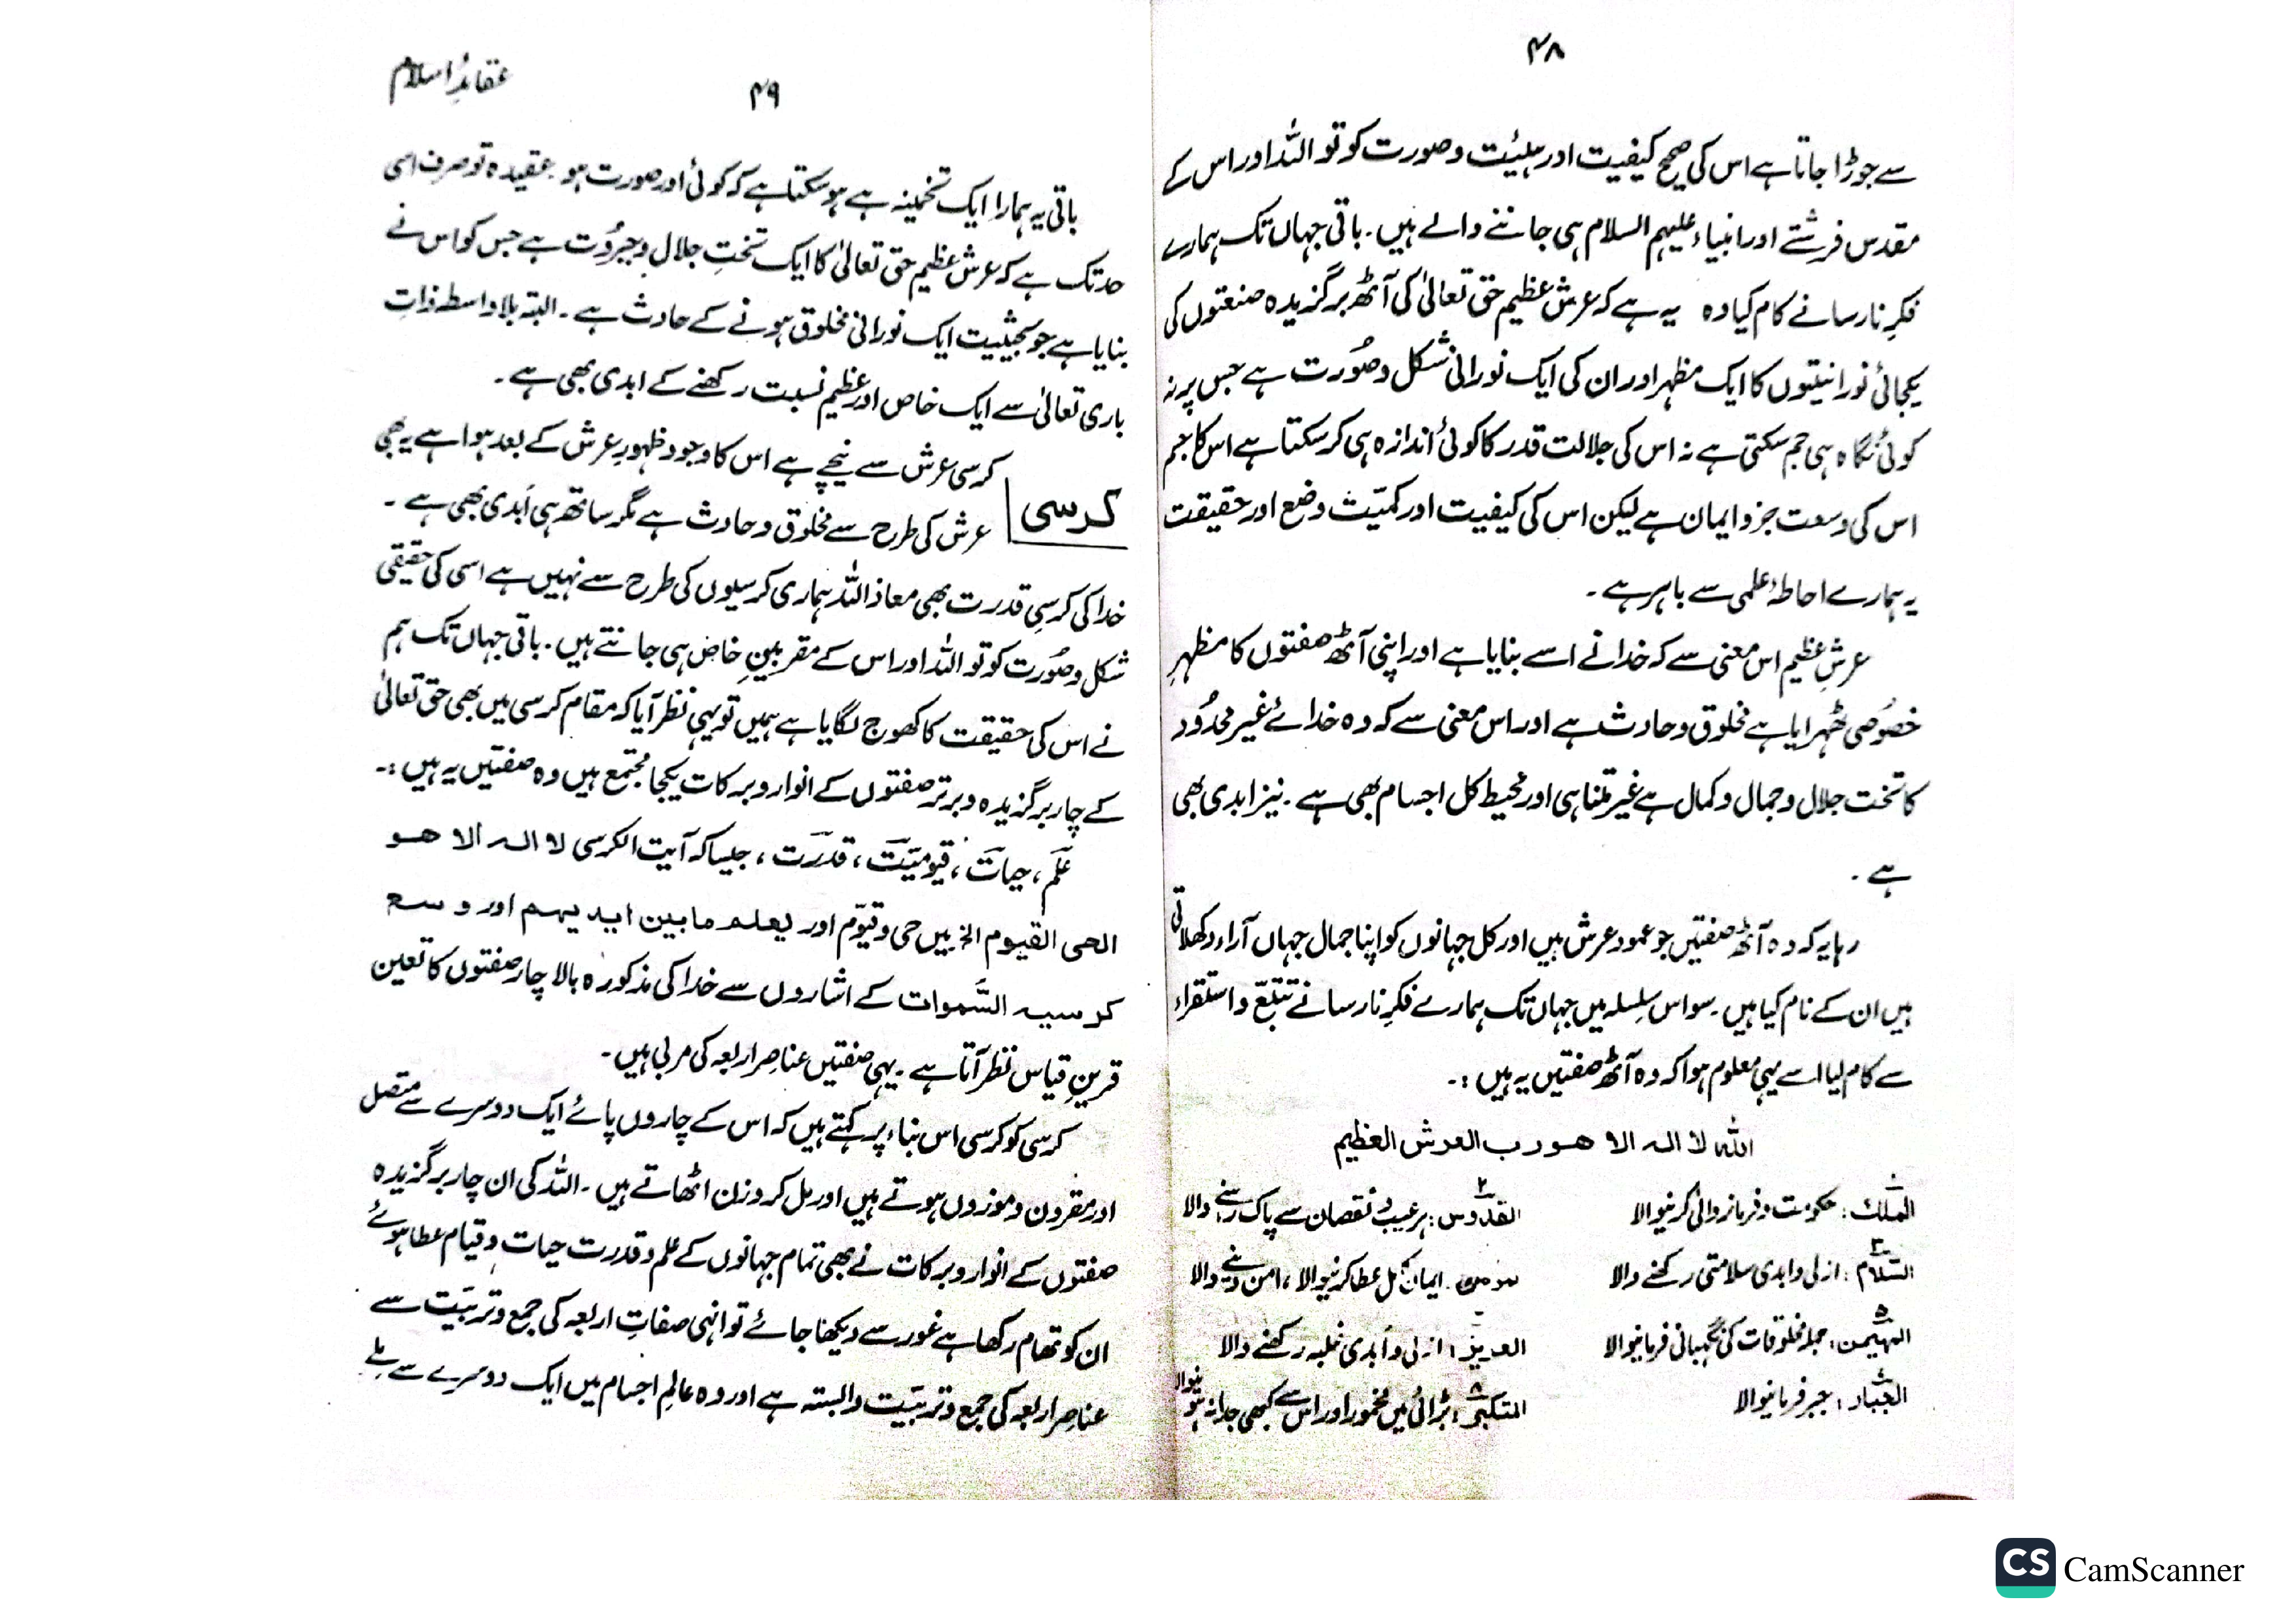 ۴۸
سے جوڑا جاتا ہے اس کی صحیح کیفیت اور ہیئت و صورت کو تو اللہ اور اس کے
مقدس فرشتے اور انبیاء علیہم السلام ہی جاننے والے ہیں۔ باقی جہاں تک ہمارے
فکرِ نارسا نے کام کیا وہ یہ ہے کہ عرش عظیم حق تعالیٰ کی آٹھ برگزیدہ صنعتوں کی
یکجائی نورانیتوں کا ایک مظہر اور ان کی ایک نورانی شکل و صُورت ہے جس پر نہ
کوئی نگاہ ہی جم سکتی ہے نہ اس کی جلالت قدر کا کوئی اندازہ ہی کر سکتا ہے اس کا حجم
اس کی وسعت جزو ایمان ہے لیکن اس کی کیفیت اور کمیّت وضع اور حقیقت
یہ ہمارے احاطۂ علمی سے باہر ہے۔
عرشِ عظیم اس معنی سے کہ خدا نے اسے بنایا ہے اور اپنی آٹھ صفتوں کا مظہرِ
خصُوصی ٹھہرایا ہے مخلوق و حادث ہے اور اس معنی سے کہ وہ خدائے غیر محدُود
کا تخت جلال و جمال و کمال ہے غیر متناہی اور محیط کل اجسام بھی ہے۔ نیز ابدی بھی
ہے۔
رہا یہ کہ وہ آٹھ صفتیں جو عمود عرش ہیں اور کل جہانوں کو اپنا جمال جہاں آراء دکھلاتی
ہیں ان کے نام کیا ہیں۔ سو اس سِلسلہ میں جہاں تک ہمارے فکرِ نارسا نے تتبّع و استقراء
سے کام لیا اسے یہی معلوم ہوا کہ وہ آٹھ صفتیں یہ ہیں :۔
اللہ لا الہ الا ھو رب العرش العظیم
۱ الملک : حکومت و فرمانروائی کرنیوالا ۲ القدّوس : ہر عیب و نقصان سے پاک رہنے والا
۳ السّلام : ازلی و ابدی سلامتی رکھنے والا مومن۔ ایمان کامل عطا کرنیوالا ، امن دینے والا
۵ المہیمن : جملہ مخلوقات کی نگہبانی فرمانیوالا العزیز : ازلی و اَبدی غلبہ رکھنے والا
الجبّار : جبر فرمانیوالا ۸ المتکبّر : بڑائی میں مخمور اور اس سے کبھی جدا نہ ہونیوالا
عقائدِ اسلام
۴۹
باقی یہ ہمارا ایک تخمینہ ہے ہو سکتا ہے کہ کوئی اور صورت ہو۔ عقیدہ تو صرف اسی
حد تک ہے کہ عرش عظیم حق تعالیٰ کا ایک تختِ جلال و جبرُوت ہے جس کو اس نے
بنایا ہے جو بحیثیت ایک نورانی مخلوق ہونے کے حادث ہے۔ البتہ بلا واسطہ ذاتِ
باری تعالیٰ سے ایک خاص اور عظیم نسبت رکھنے کے ابدی بھی ہے۔
کرسی
کرسی عرش سے نیچے ہے اس کا وجود ظہورِ عرش کے بعد ہوا ہے یہ بھی
عرش کی طرح سے مخلوق و حادث ہے مگر ساتھ ہی اَبدی بھی ہے۔
خدا کی کرسیِ قدرت بھی معاذ اللہ ہماری کرسیوں کی طرح سے نہیں ہے اسی کی حقیقی
شکل و صُورت کو تو اللہ اور اس کے مقربینِ خاص ہی جانتے ہیں۔ باقی جہاں تک ہم
نے اس کی حقیقت کا کھوج لگایا ہے ہمیں تو یہی نظر آیا کہ مقام کرسی میں بھی حق تعالیٰ
کے چار برگزیدہ و برتر صفتوں کے انوار و برکات یکجا مجتمع ہیں وہ صفتیں یہ ہیں :۔
علم ، حیات ، قیومیّت ، قدرت ، جیسا کہ آیت الکرسی لا الہ الا ھو
الحی القیوم الخ میں حی و قیّوم اور یعلم مابین ایدیہم اور وسع
کرسیہ السّموات کے اشاروں سے خدا کی مذکورہ بالا چار صفتوں کا تعین
قرینِ قیاس نظر آتا ہے۔ یہی صفتیں عناصر اربعہ کی مربی ہیں۔
کرسی کو کرسی اس بناء پر کہتے ہیں کہ اس کے چاروں پائے ایک دوسرے سے متصل
اور مقرون و موزوں ہوتے ہیں اور مل کر وزن اٹھاتے ہیں۔ اللہ کی ان چار برگزیدہ
صفتوں کے انوار و برکات نے بھی تمام جہانوں کے علم و قدرت حیات و قیام عطا ہوئے
ان کو تھام رکھا ہے غور سے دیکھا جائے تو انہی صفاتِ اربعہ کی جمع و تربیَت سے
عناصرِ اربعہ کی جمع و تربیَت وابستہ ہے اور وہ عالمِ اجسام میں ایک دوسرے سے ملے
CS CamScanner